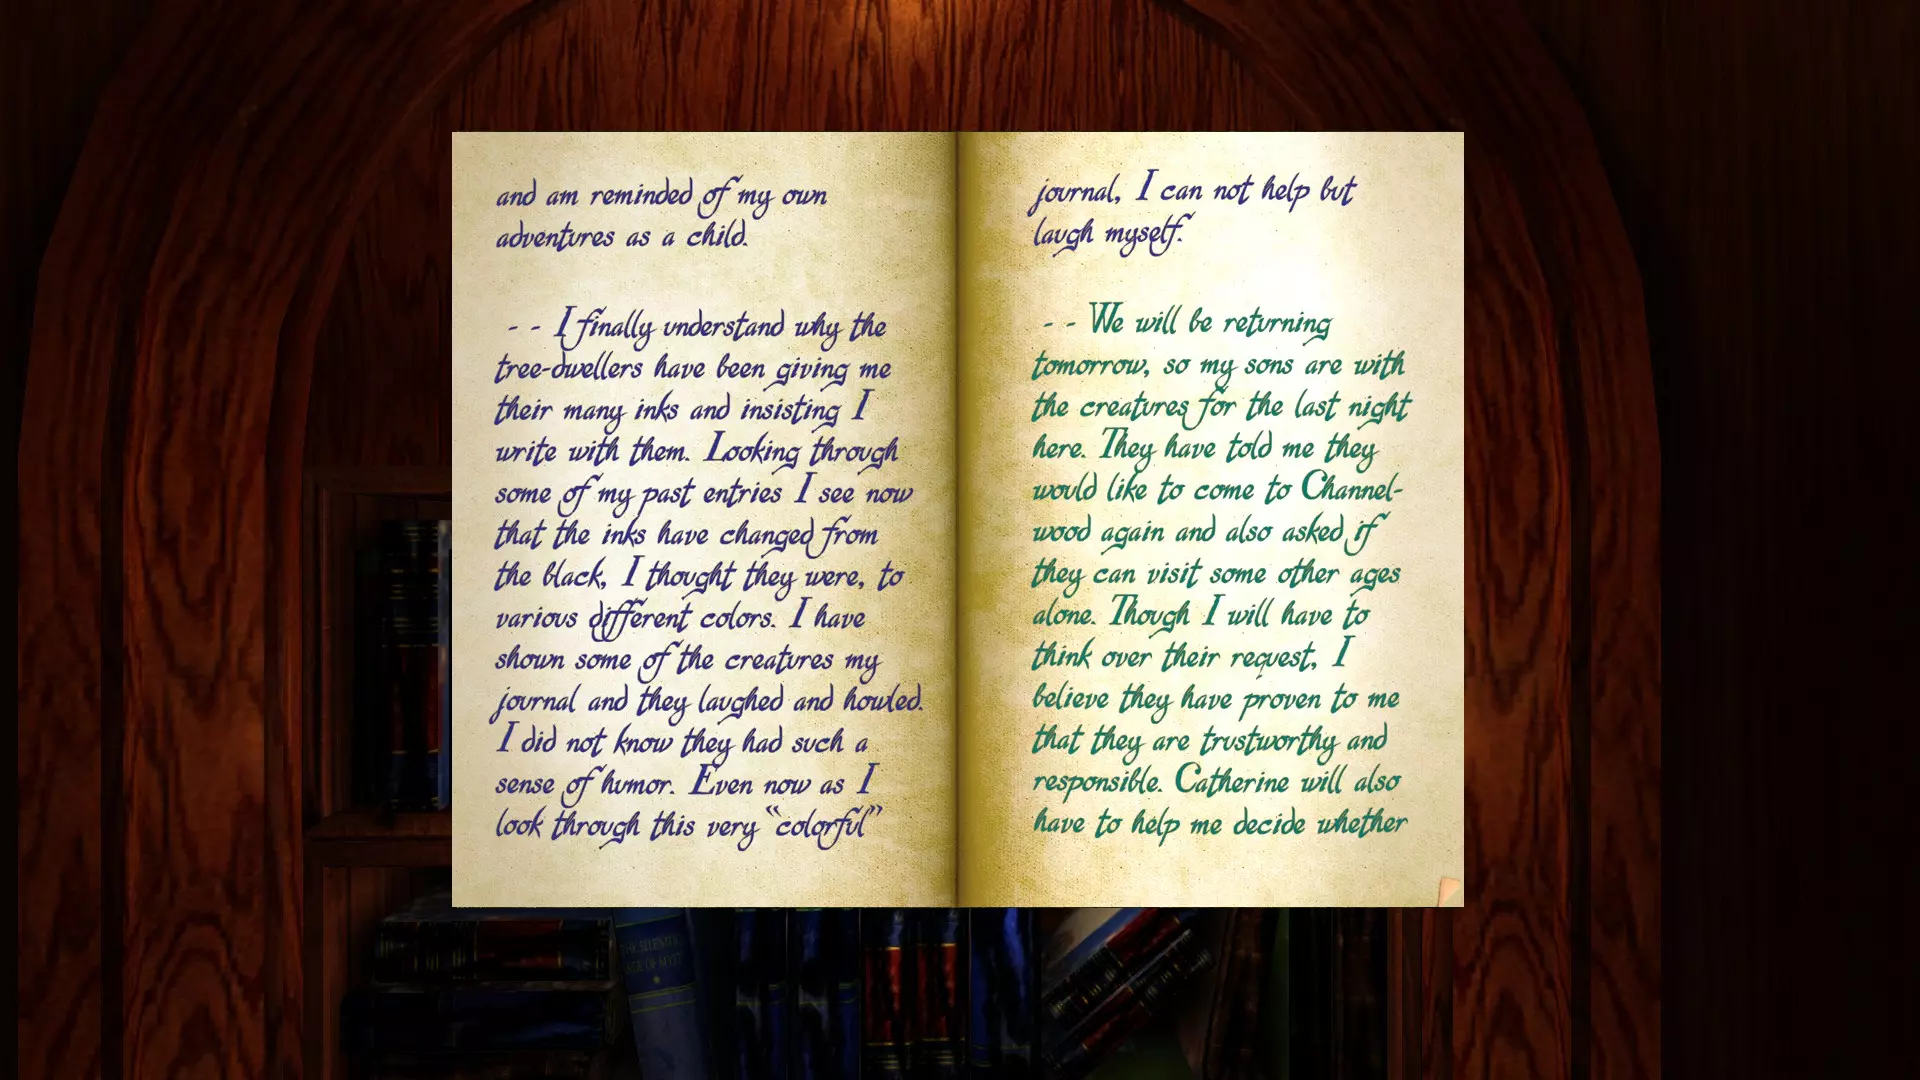 and am reminded of my own
adventures as a child.
- - I finally understand why the
tree-dwellers have been giving me
their many inks and insisting I
write with them. Looking through
some of my past entries I see now
that the inks have changed from
the black, I thought they were, to
various different colors. I have
shown some of the creatures my
journal and they laughed and howled.
I did not know they had such a
sense of humor. Even now as I
look through this very “colorful”
journal, I can not help but
laugh myself.
- - We will be returning
tomorrow, so my sons are with
the creatures for the last night
here. They have told me they
would like to come to Channel-
wood again and also asked if
they can visit some other ages
alone. Though I will have to
think over their request, I
believe they have proven to me
that they are trustworthy and
responsible. Catherine will also
have to help me decide whether
OF MYST